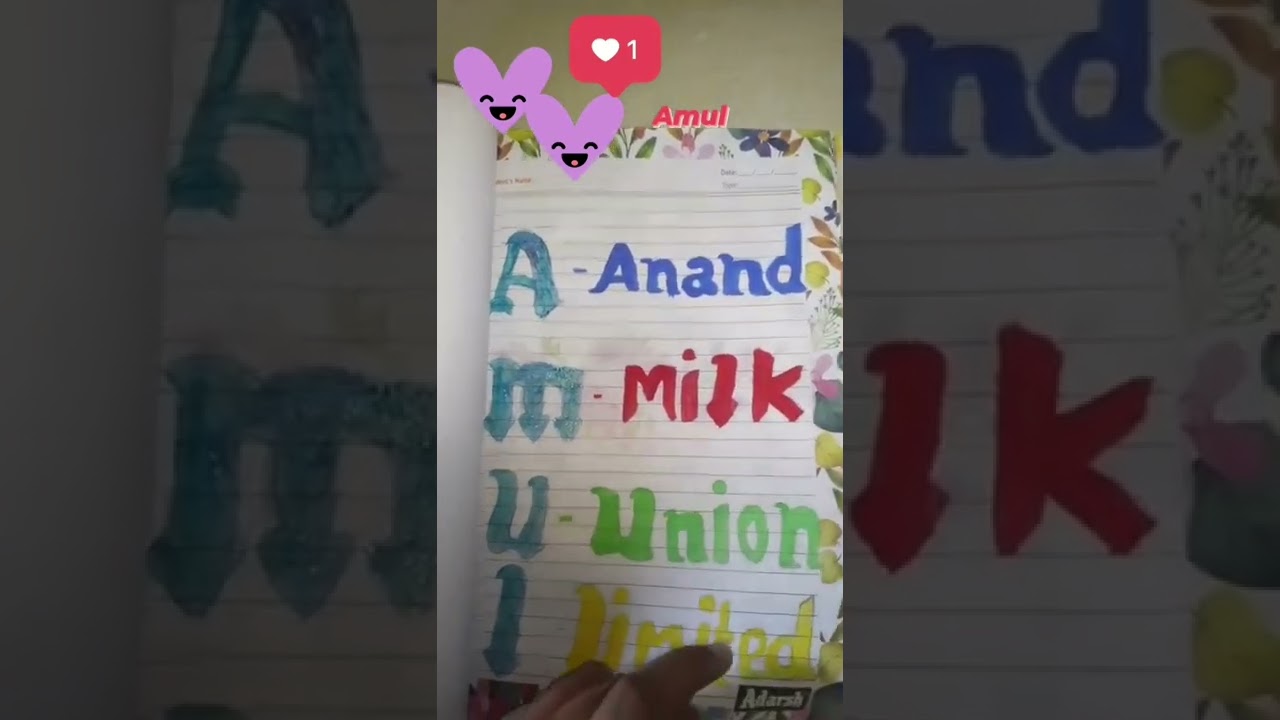 1
Amul
Date: __/__/__
A - Anand
m - Milk
U - Union
l limited
Adarsh